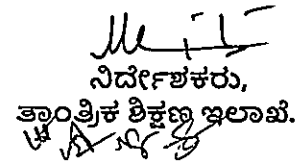 ನಿರ್ದೇಶಕರು,
ತಾಂತ್ರಿಕ ಶಿಕ್ಷಣ ಇಲಾಖೆ.